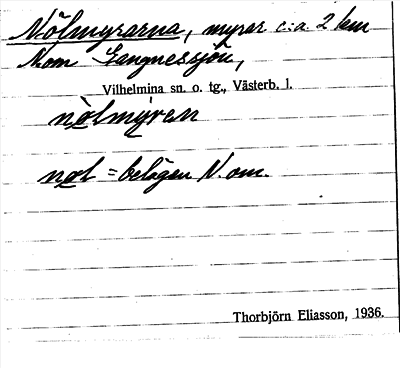 Nölmyrarna, myrar c:a 2 km
N.om Langnessjön,
Vilhelmina sn. o. tg., Västerb. l.
nölmyren
nøl = belägen N. om.
Thorbjörn Eliasson, 1936.